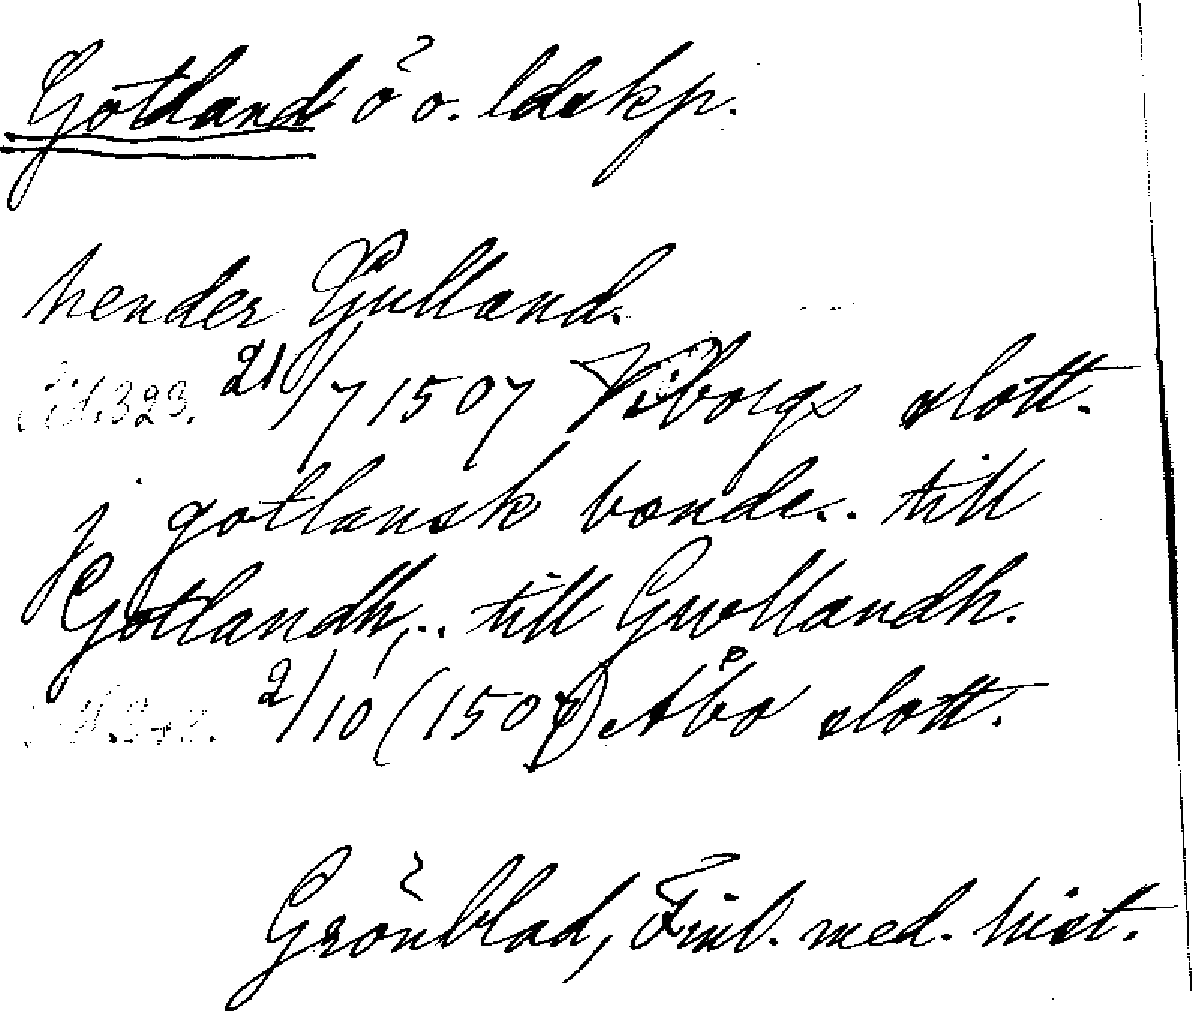 Gotland ö o. ldskp.
hender Gulland.
s. 323. 21/7 1507 Viborgs slott.
j gotlansk bonde... till
Gotlandh,... till Gwllandh.
2/10 (1507) Åbo slott.
Grönblad, Finl. med. hist.